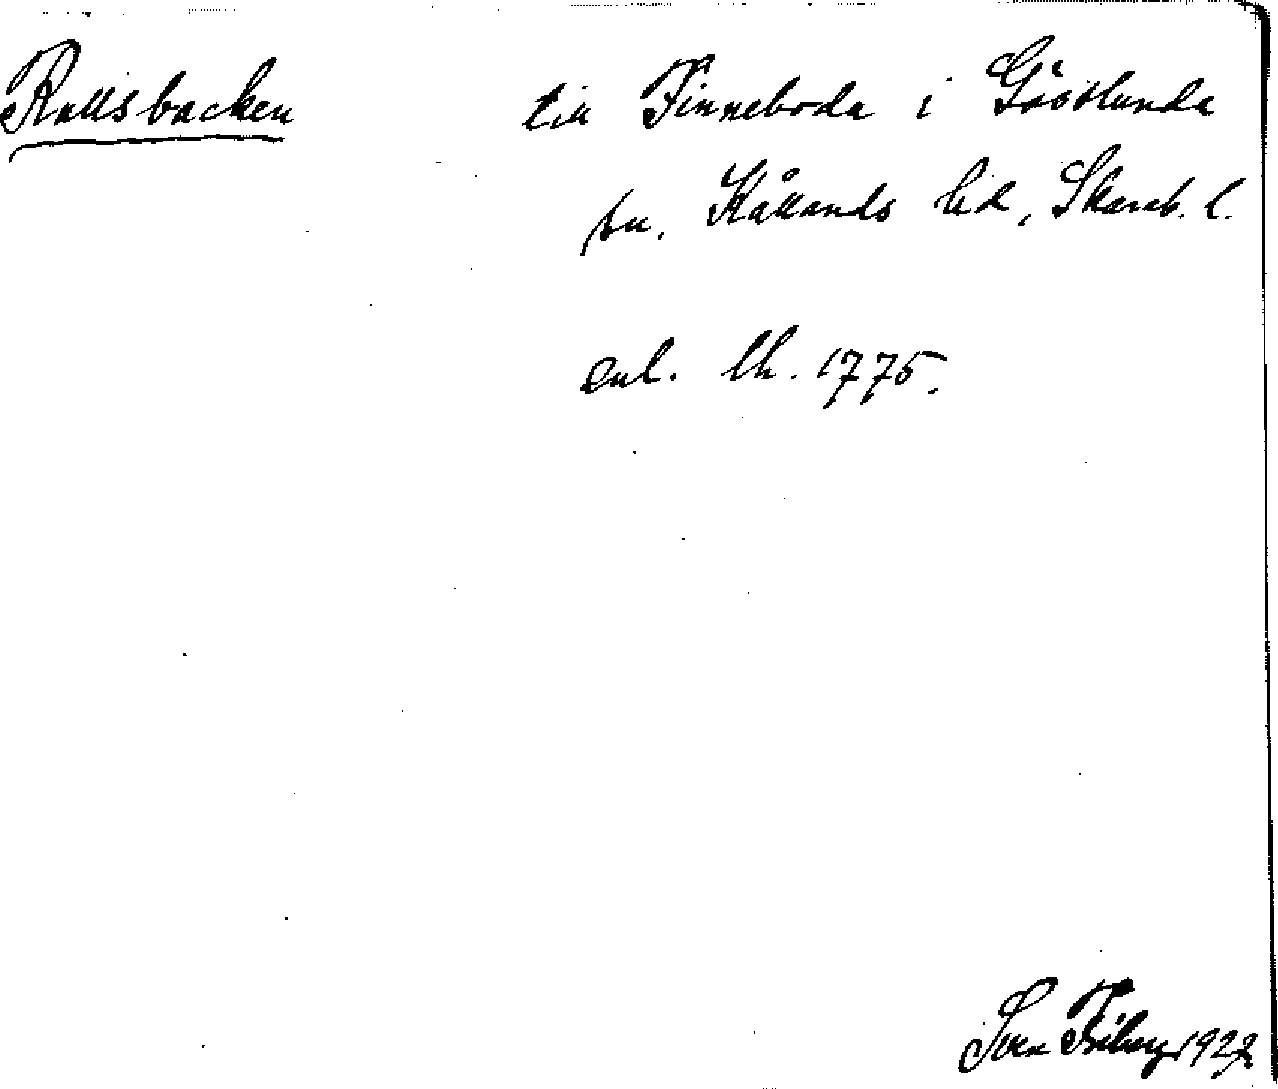 Rallsbacken till Finneboda i Gösslunda
sn, Kållands hd, Skarab. l.
enl. lh. 1775.
Sven Friberg 1922